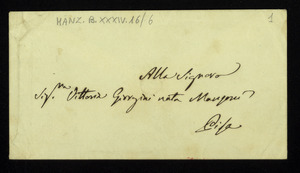 MANZ. B. XXXIV. 16/6
1
Alla Signora
Sig.ra Vittoria Giorgini nata Manzoni
Pisa